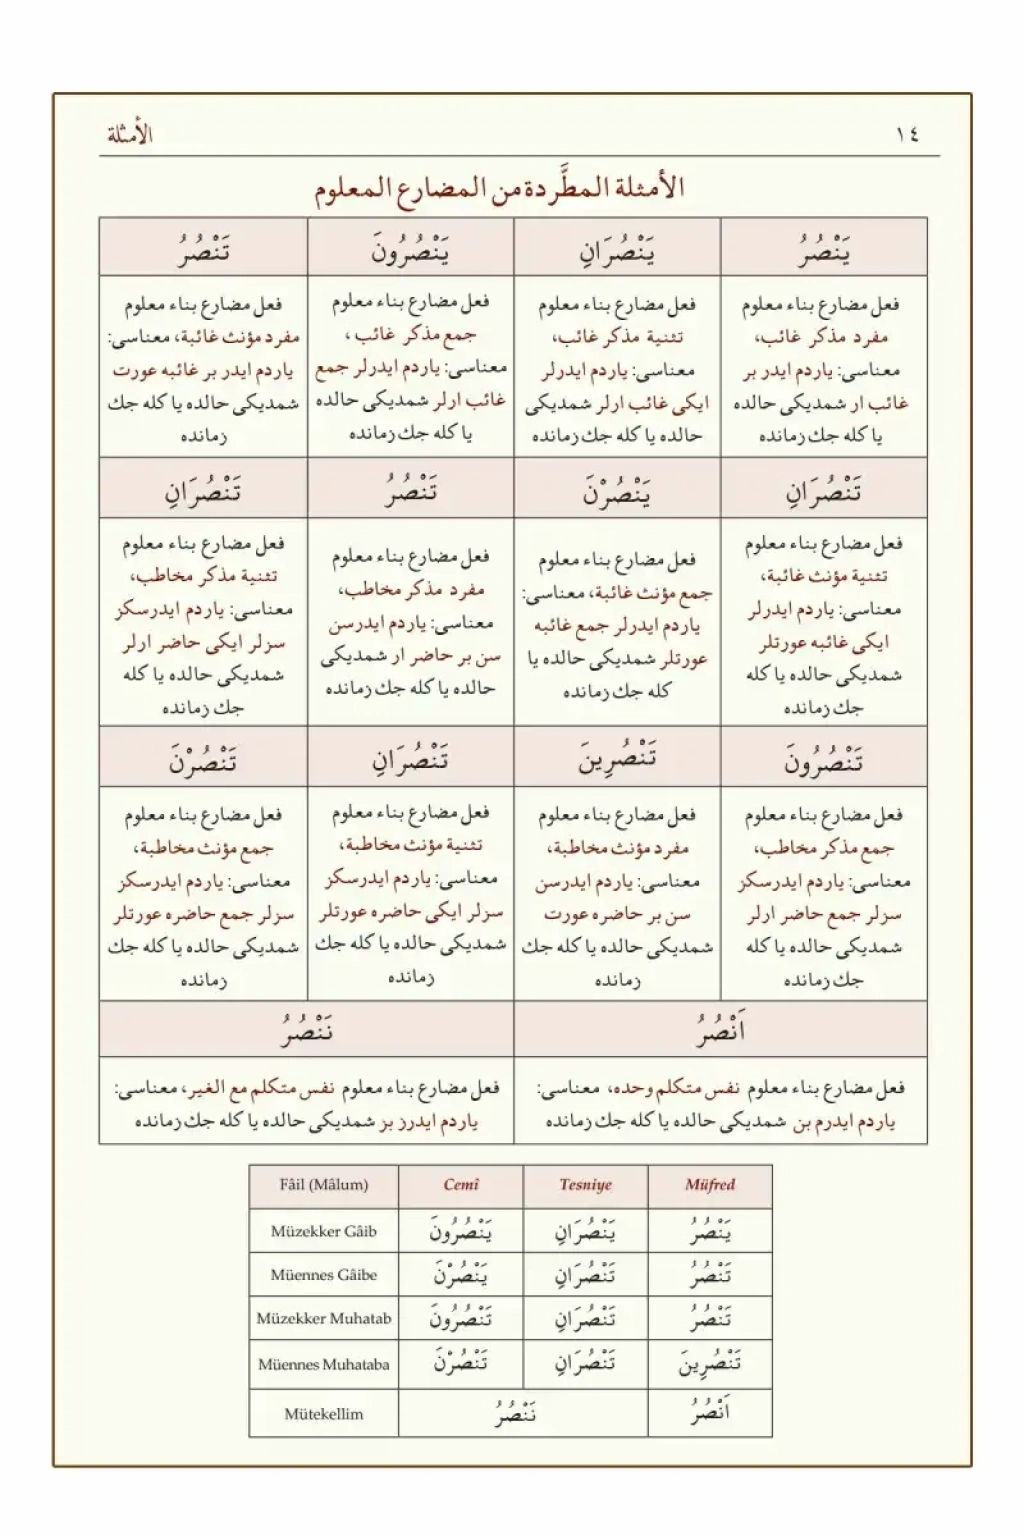 ١٤
الأمثلة
الأمثلة المطَّردة من المضارع المعلوم
يَنْصُرُ
يَنْصُرَانِ
يَنْصُرُونَ
تَنْصُرُ
فعل مضارع بناء معلوم
مفرد مذكر غائب،
معناسى: ياردم ايدر بر
غائب ار شمديكى حالده
يا كله جك زمانده
فعل مضارع بناء معلوم
تثنية مذكر غائب،
معناسى: ياردم ايدرلر
ايكى غائب ارلر شمديكى
حالده يا كله جك زمانده
فعل مضارع بناء معلوم
جمع مذكر غائب ،
معناسى: ياردم ايدرلر جمع
غائب ارلر شمديكى حالده
يا كله جك زمانده
فعل مضارع بناء معلوم
مفرد مؤنث غائبة، معناسى:
ياردم ايدر بر غائبه عورت
شمديكى حالده يا كله جك
زمانده
تَنْصُرَانِ
يَنْصُرْنَ
تَنْصُرُ
تَنْصُرَانِ
فعل مضارع بناء معلوم
تثنية مؤنث غائبة،
معناسى: ياردم ايدرلر
ايكى غائبه عورتلر
شمديكى حالده يا كله
جك زمانده
فعل مضارع بناء معلوم
جمع مؤنث غائبة، معناسى:
ياردم ايدرلر جمع غائبه
عورتلر شمديكى حالده يا
كله جك زمانده
فعل مضارع بناء معلوم
مفرد مذكر مخاطب،
معناسى: ياردم ايدرسن
سن بر حاضر ار شمديكى
حالده يا كله جك زمانده
فعل مضارع بناء معلوم
تثنية مذكر مخاطب،
معناسى: ياردم ايدرسكز
سزلر ايكى حاضر ارلر
شمديكى حالده يا كله
جك زمانده
تَنْصُرُونَ
تَنْصُرِينَ
تَنْصُرَانِ
تَنْصُرْنَ
فعل مضارع بناء معلوم
جمع مذكر مخاطب،
معناسى: ياردم ايدرسكز
سزلر جمع حاضر ارلر
شمديكى حالده يا كله
جك زمانده
فعل مضارع بناء معلوم
مفرد مؤنث مخاطبة،
معناسى: ياردم ايدرسن
سن بر حاضره عورت
شمديكى حالده يا كله جك
زمانده
فعل مضارع بناء معلوم
تثنية مؤنث مخاطبة،
معناسى: ياردم ايدرسكز
سزلر ايكى حاضره عورتلر
شمديكى حالده يا كله جك
زمانده
فعل مضارع بناء معلوم
جمع مؤنث مخاطبة،
معناسى: ياردم ايدرسكز
سزلر جمع حاضره عورتلر
شمديكى حالده يا كله جك
زمانده
اَنْصُرُ
نَنْصُرُ
فعل مضارع بناء معلوم نفس متكلم وحده، معناسى:
ياردم ايدرم بن شمديكى حالده يا كله جك زمانده
فعل مضارع بناء معلوم نفس متكلم مع الغير، معناسى:
ياردم ايدرز بز شمديكى حالده يا كله جك زمانده
Fâil (Mâlum) Cemî Tesniye Müfred
Müzekker Gâib يَنْصُرُونَ يَنْصُرَانِ يَنْصُرُ
Müennes Gâibe يَنْصُرْنَ تَنْصُرَانِ تَنْصُرُ
Müzekker Muhatab تَنْصُرُونَ تَنْصُرَانِ تَنْصُرُ
Müennes Muhataba تَنْصُرْنَ تَنْصُرَانِ تَنْصُرِينَ
Mütekellim نَنْصُرُ اَنْصُرُ